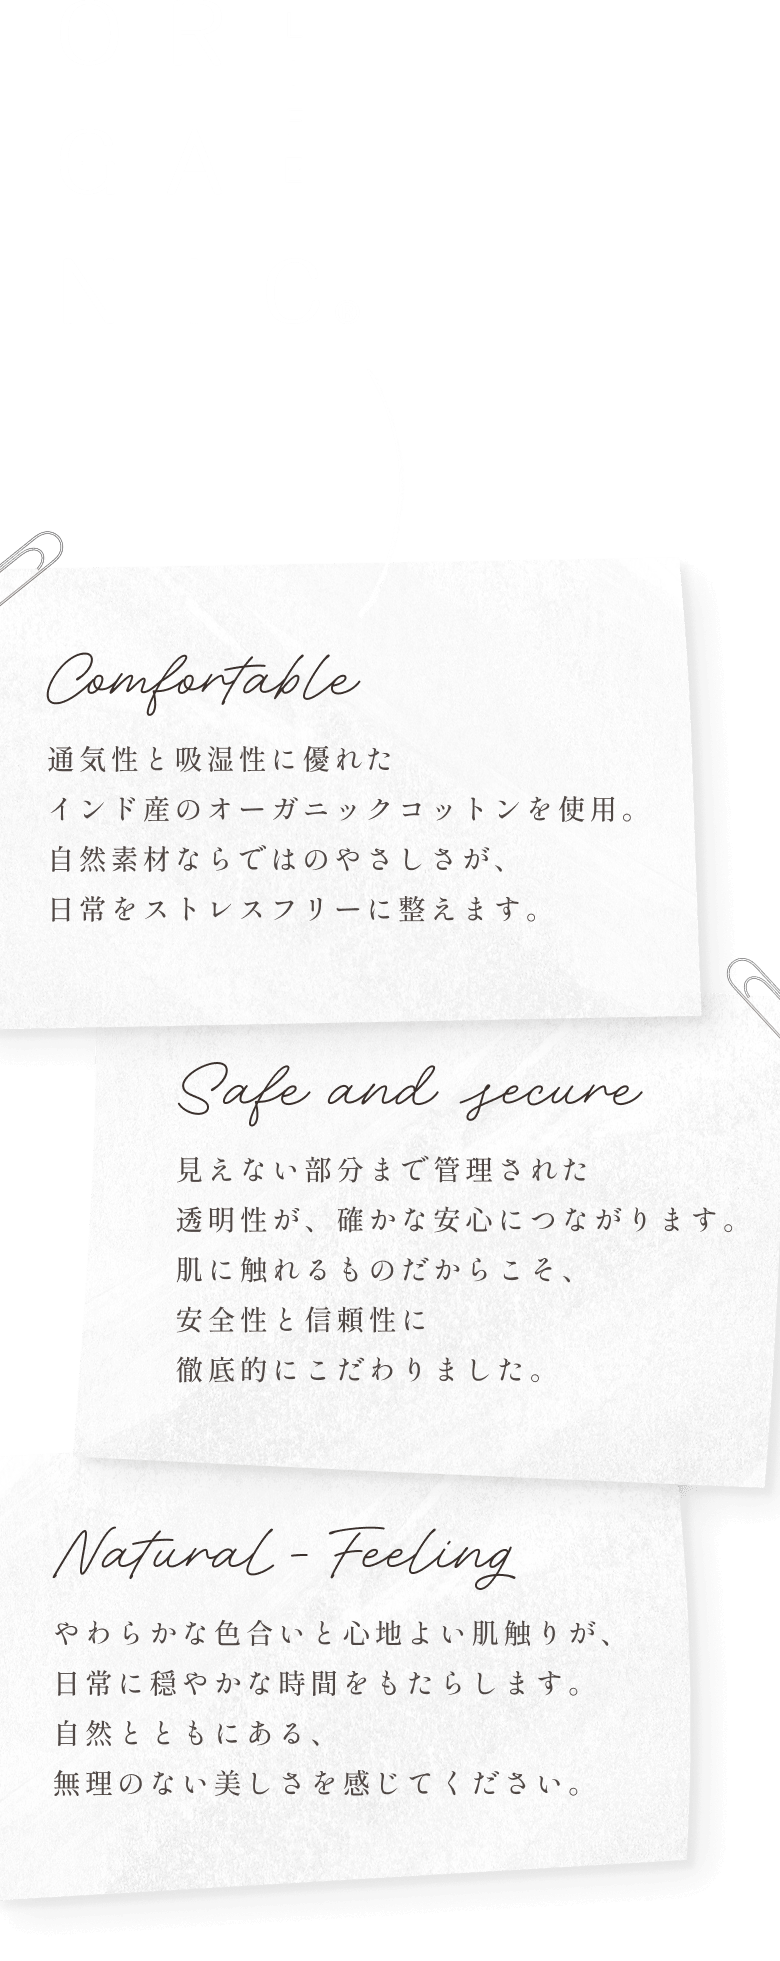 Comfortable
通気性と吸湿性に優れた
インド産のオーガニックコットンを使用。
自然素材ならではのやさしさが、
日常をストレスフリーに整えます。
Safe and secure
見えない部分まで管理された
透明性が、確かな安心につながります。
肌に触れるものだからこそ、
安全性と信頼性に
徹底的にこだわりました。
Natural - Feeling
やわらかな色合いと心地よい肌触りが、
日常に穏やかな時間をもたらします。
自然とともにある、
無理のない美しさを感じてください。